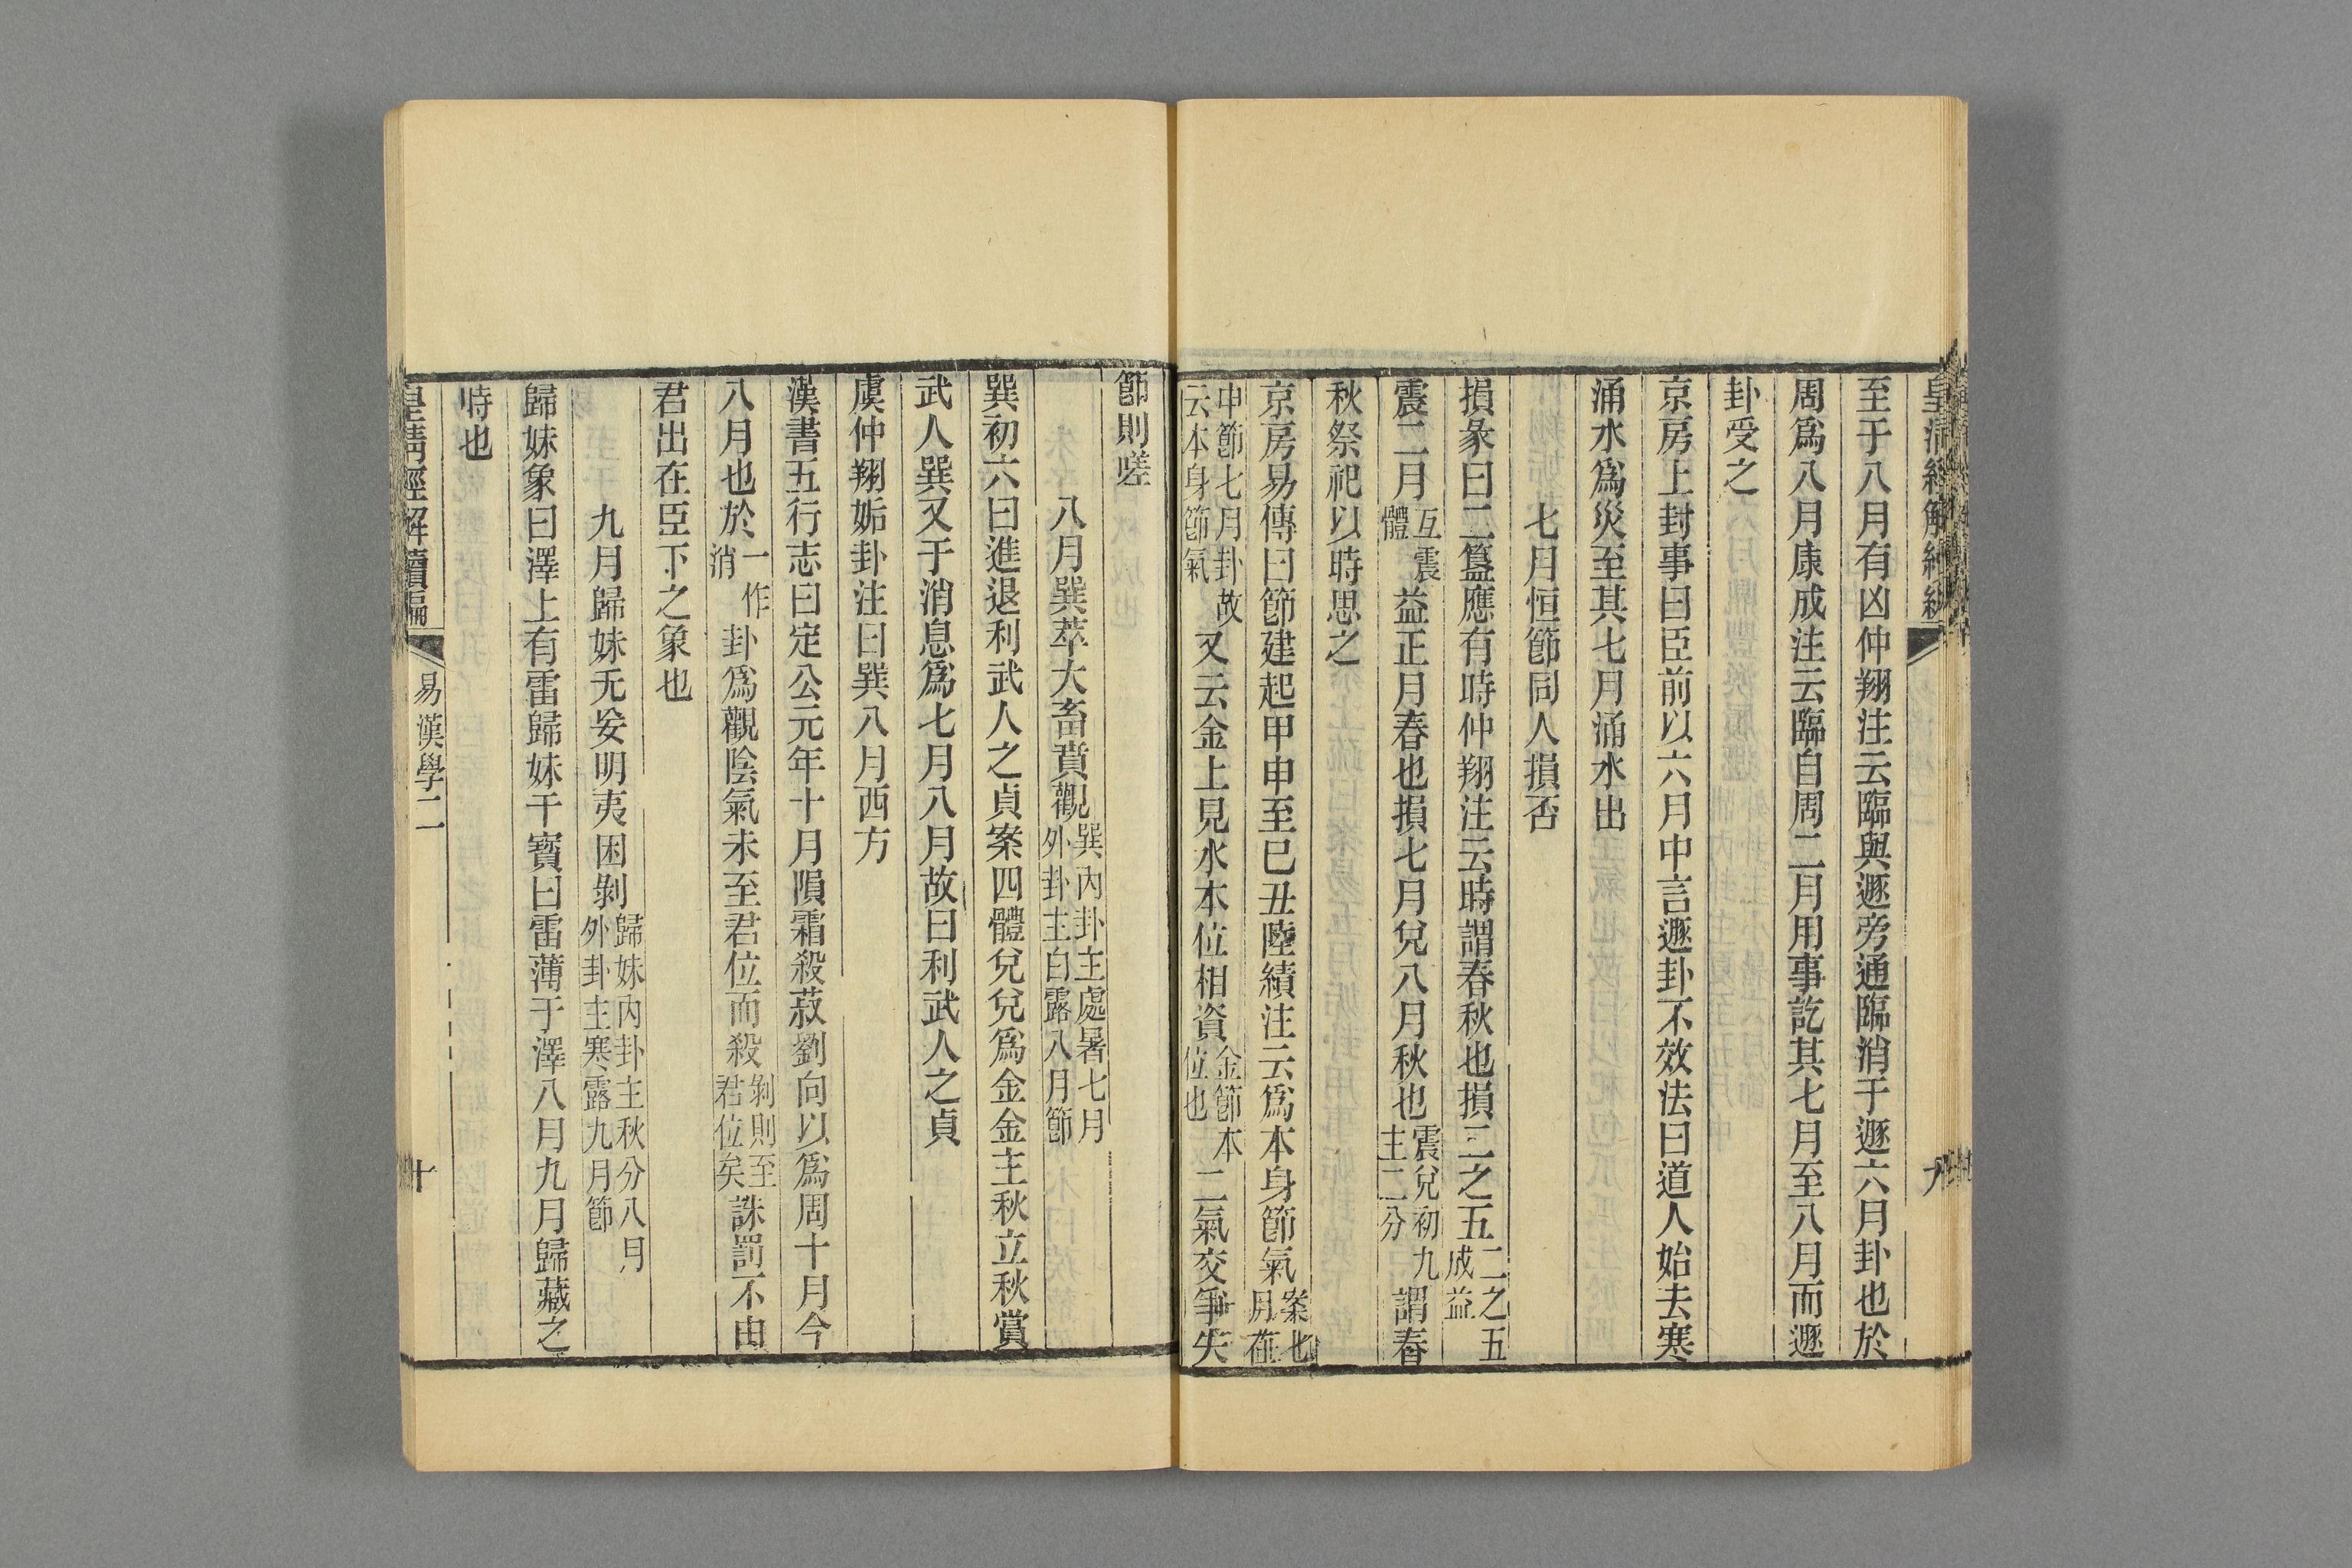 皇清經解續編
九
至于八月有凶仲翔注云臨與遯旁通臨消于遯六月卦也於
周爲八月康成注云臨自周二月用事訖其七月至八月而遯
卦受之
京房上封事曰臣前以六月中言遯卦不效法曰道人始去寒
涌水爲災至其七月涌水出
七月恒節同人損否
損彖曰二簋應有時仲翔注云時謂春秋也損二之五二之五成益
震二月互震體益正月春也損七月兌八月秋也震兌初九主二分謂春
秋祭祀以時思之
京房易傳曰節建起甲申至巳丑陸績注云爲本身節氣案七月在
申節七月卦故云本身節氣又云金上見水本位相資金節本位也二氣交爭失
節則嗟
八月巽萃大畜賁觀巽內卦主處暑七月外卦主白露八月節
巽初六曰進退利武人之貞案四體兌兌爲金金主秋立秋賞
武人巽又于消息爲七月八月故曰利武人之貞
虞仲翔姤卦注曰巽八月西方
漢書五行志曰定公元年十月隕霜殺菽劉向以爲周十月今
八月也於一作消卦爲觀陰氣未至君位而殺剝則至君位矣誅罰不由
君出在臣下之象也
九月歸妹无妄明夷困剝歸妹內卦主秋分八月外卦主寒露九月節
歸妹象曰澤上有雷歸妹干寶曰雷薄于澤八月九月歸藏之
時也
皇清經解續編
易漢學二
十